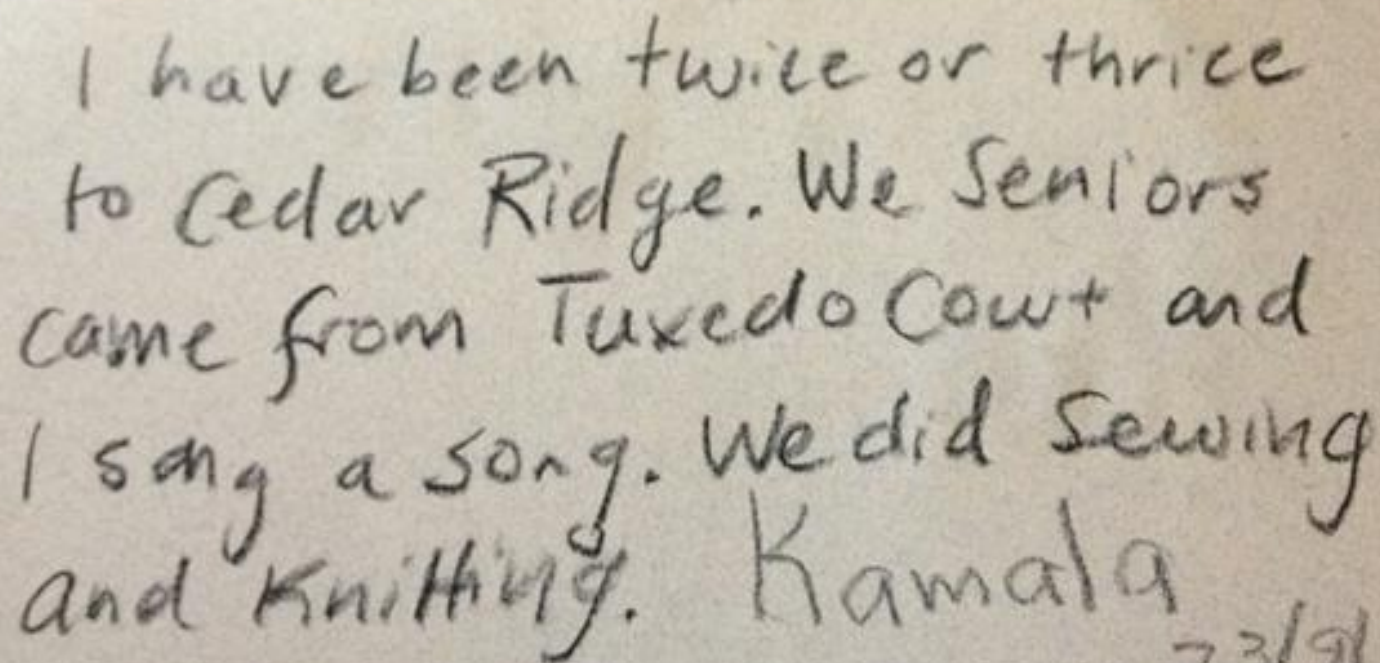 I have been twice or thrice
to Cedar Ridge. We Seniors
came from Tuxedo Court and
I sang a song. We did Sewing
and Knitting. Kamala